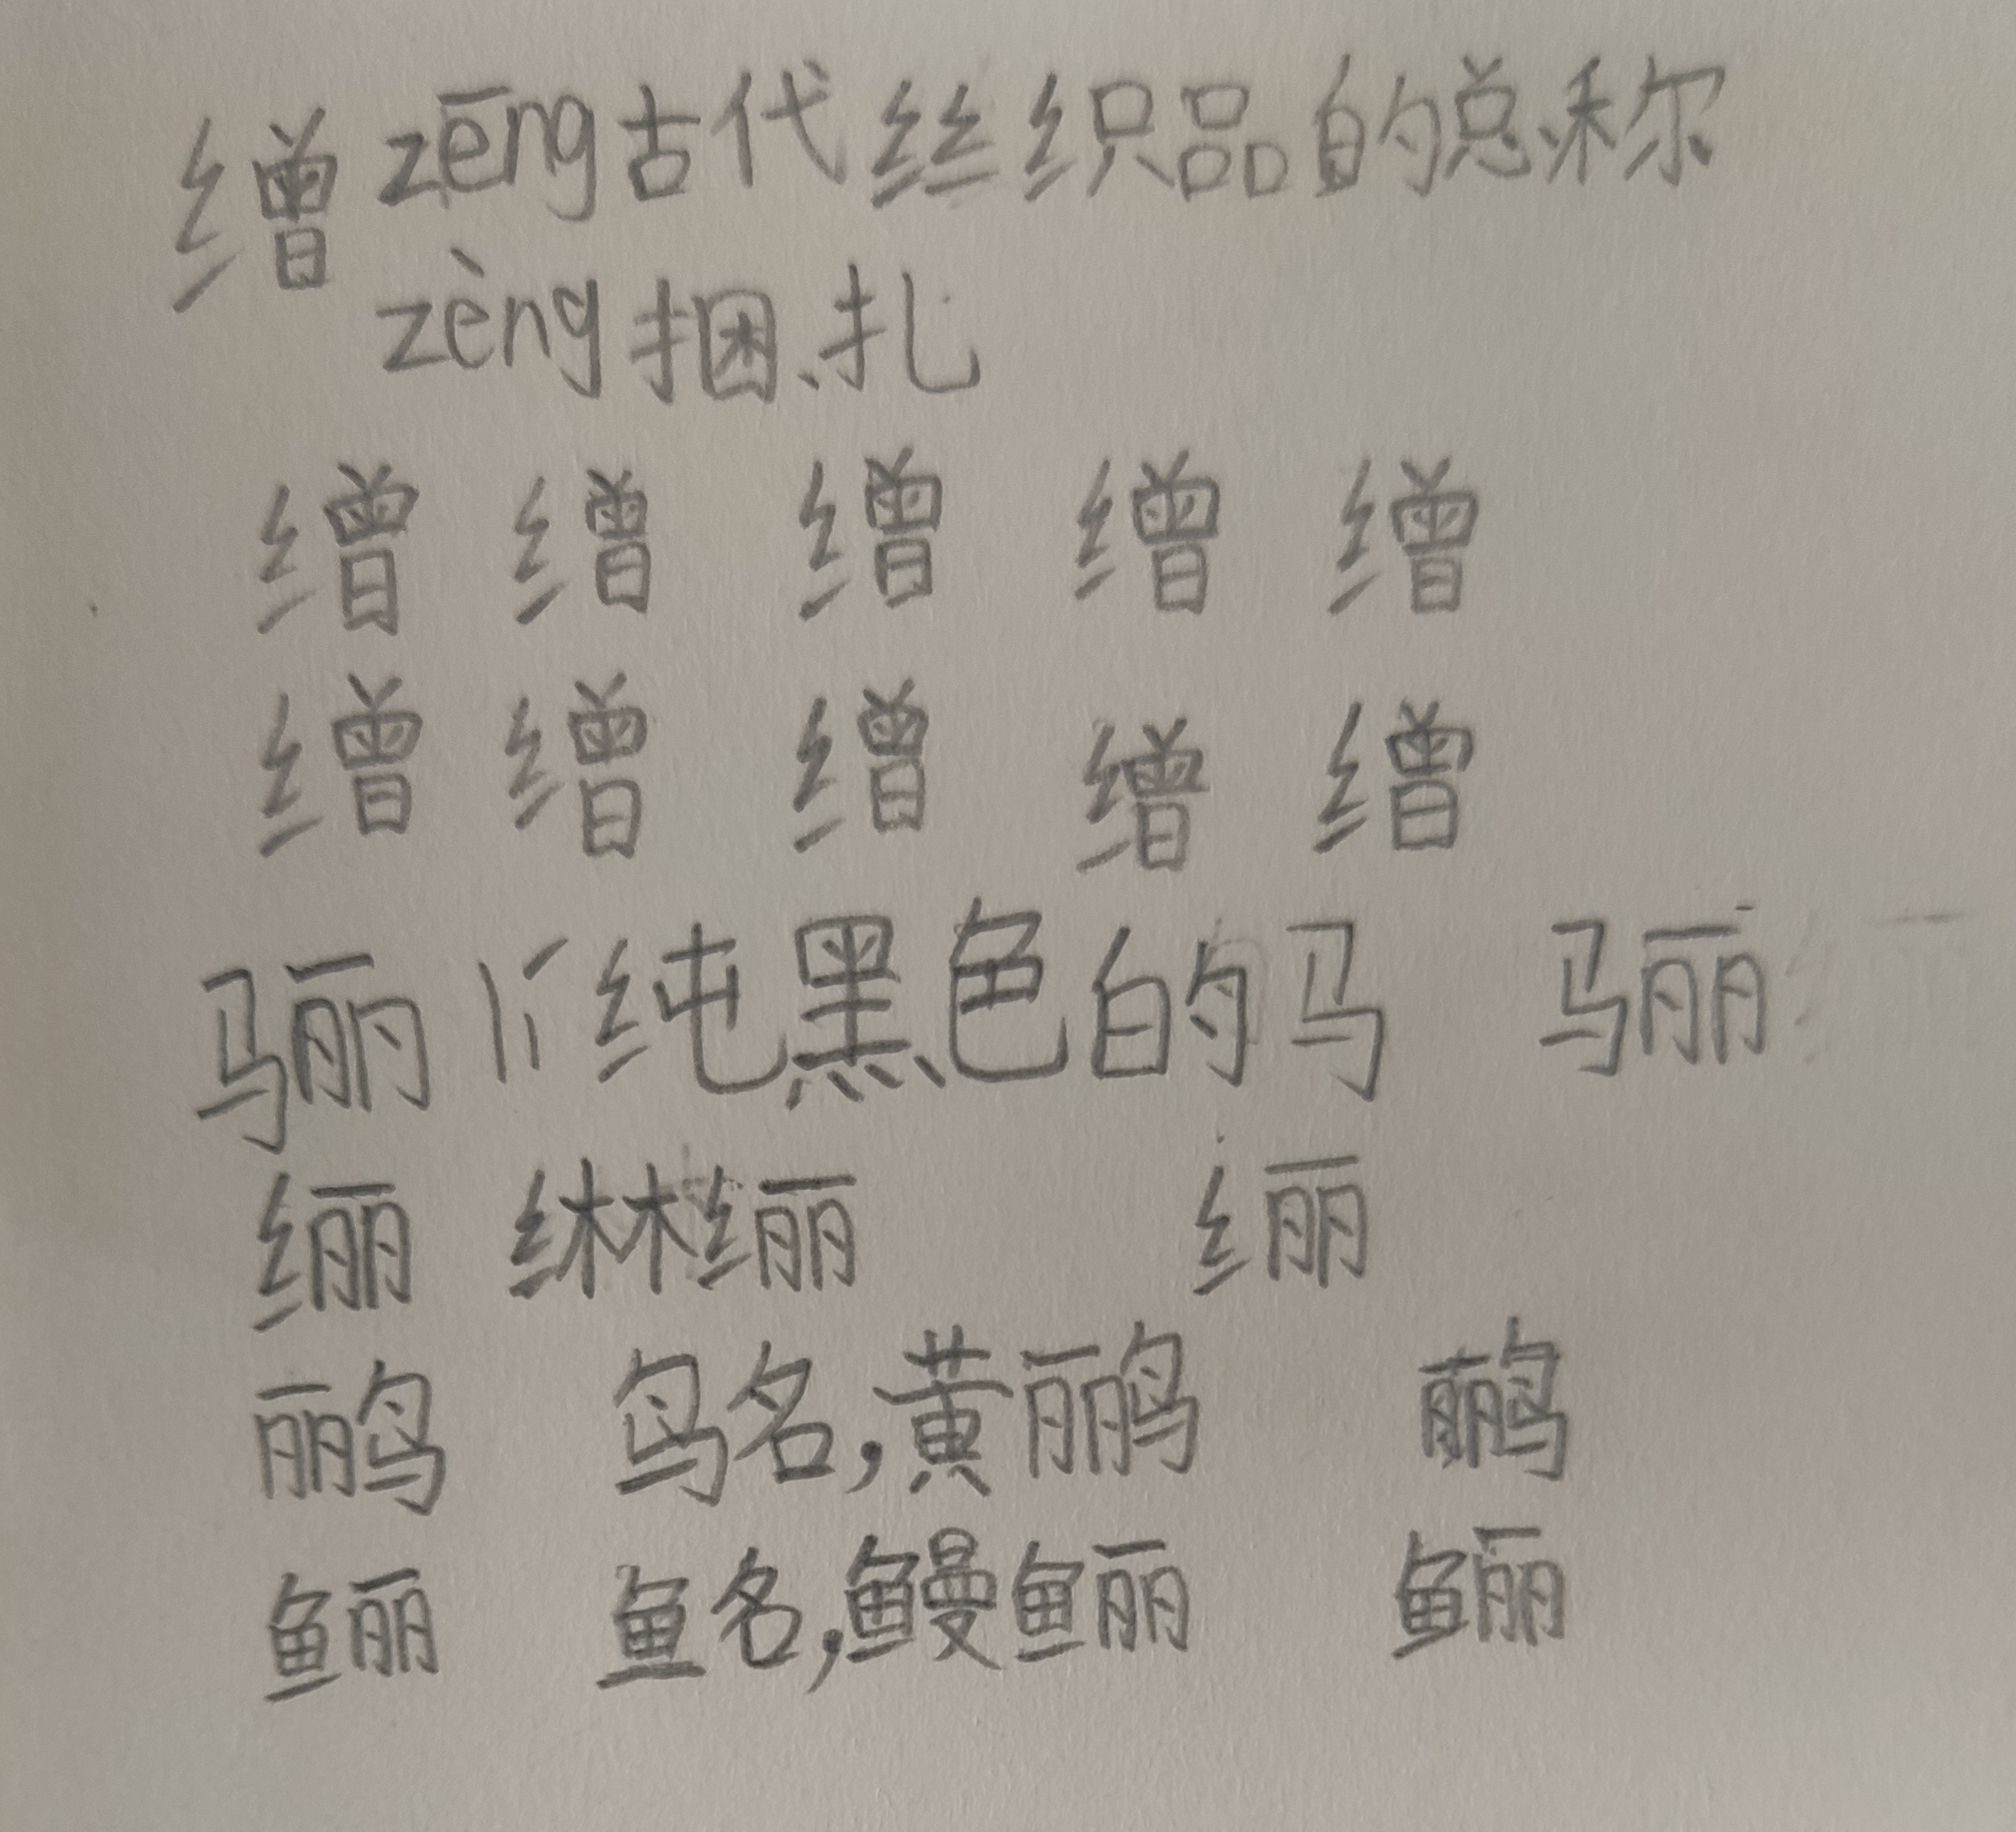 缯 zēng古代丝织品的总称
zèng捆、扎
缯 缯 缯 缯 缯
缯 缯 缯 缯 缯
骊 lí 纯黑色的马 骊
𫄥 𬘭𫄥 𫄥
鹂 鸟名,黄鹂 鹂
鲡 鱼名,鳗鲡 鲡